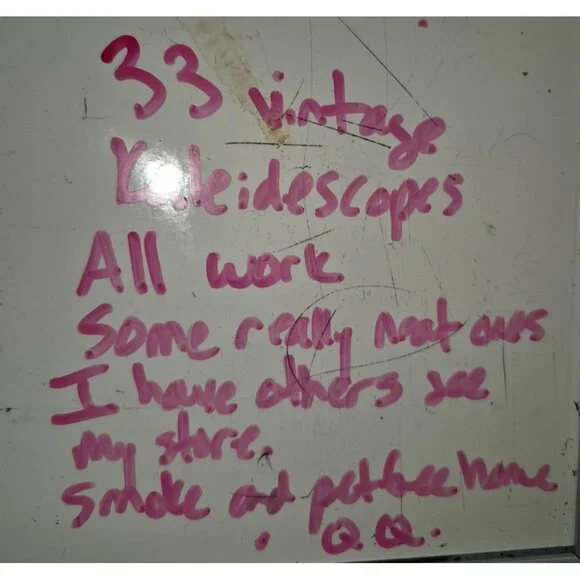 33 vintage
Kaleidescopes
All work
Some really neat ones
I have others see
my store.
Smoke and pet free home
. Q Q.